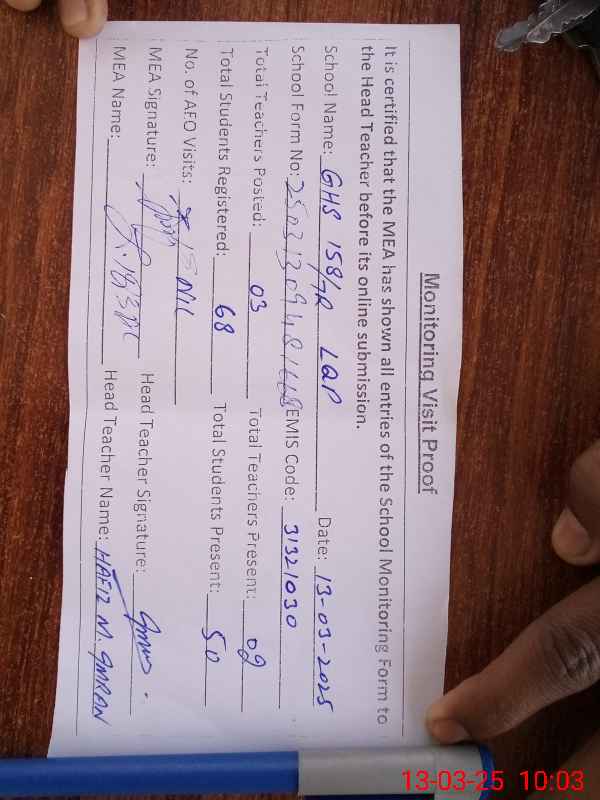 Monitoring Visit Proof
It is certified that the MEA has shown all entries of the School Monitoring Form to
the Head Teacher before its online submission.
School Name: GHS 158/7R LQP Date: 13-03-2025
School Form No: EMIS Code: 31321030
Total Teachers Posted: 03 Total Teachers Present: 02
Total Students Registered: 68 Total Students Present: 50
No. of AEO Visits: NIL
MEA Signature: Head Teacher Signature:
MEA Name: Head Teacher Name: HAFIZ M. IMRAN
13-03-25 10:03